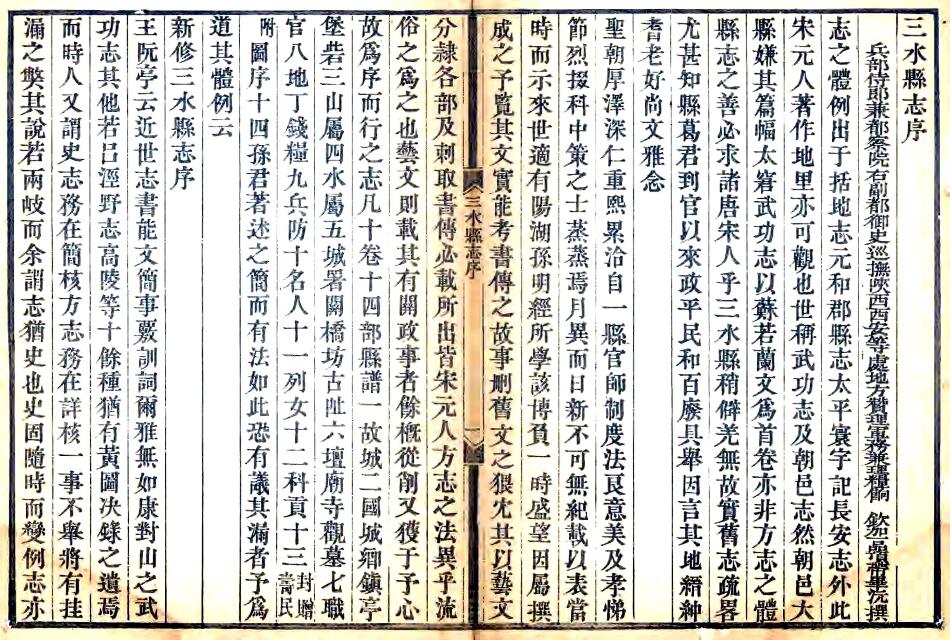 三水縣志序
兵部侍郎兼都察院右副都御史巡撫陝西西安等處地方贊理軍務兼理糧餉 欽加品頂帶畢沅撰
志之體例出于括地志元和郡縣志太平寰宇記長安志外此
宋元人著作地里亦可觀也世稱武功志及朝邑志然朝邑大
縣嫌其篇幅太窘武功志以蘇若蘭文爲首卷亦非方志之體
縣志之善必求諸唐宋人乎三水縣稍僻羌無故實舊志疏畧
尤甚知縣葛君到官以來政平民和百廢具舉因言其地縉紳
耆老好尚文雅念
聖朝厚澤深仁重熙累洽自一縣官師制度法良意美及孝悌
節烈掇科中策之士蒸蒸焉月異而日新不可無紀載以表當
時而示來世適有陽湖孫明經所學該博負一時盛望因屬撰
成之予覽其文實能考書傳之故事刪舊文之猥宂其以藝文
三水縣志序
一
分隷各部及刺取書傳必載所出皆宋元人方志之法異乎流
俗之爲之也藝文則載其有關政事者餘槪從削又獲于予心
故爲序而行之志凡十卷十四部縣譜一故城二國城鄉鎮亭
堡砦三山屬四水屬五城署關橋坊古阯六壇廟寺觀墓七職
官八地丁錢糧九兵防十名人十一列女十二科貢十三封贈壽民
附圖序十四孫君著述之簡而有法如此恐有議其漏者予爲
道其體例云
新修三水縣志序
王阮亭云近世志書能文簡事覈訓詞爾雅無如康對山之武
功志其他若呂涇野志高陵等十餘種猶有黃圖决錄之遺焉
而時人又謂史志務在簡核方志務在詳核一事不舉將有挂
漏之獘其說若兩岐而余謂志猶史也史固隨時而變例志亦